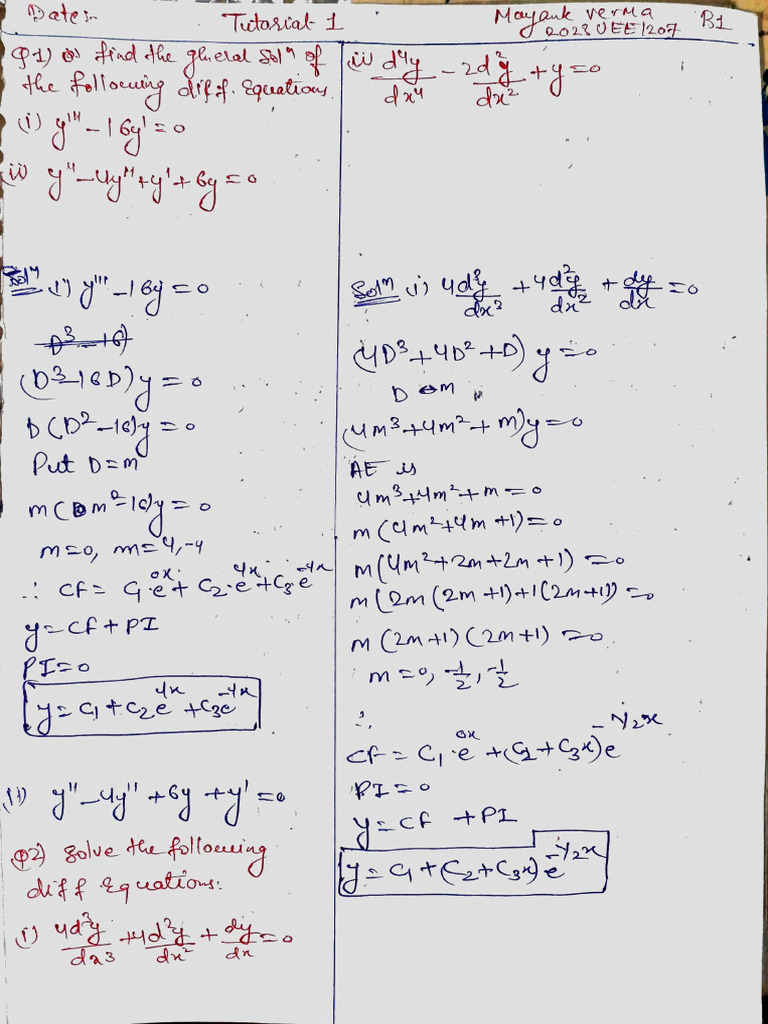 Date:-
Tutorial-1
Mayank Verma
2023UEE1207 B1
Q1) find the general Solⁿ of
the following diff. Equations
(i) y''' - 16y' = 0
(ii) y''' - 4y'' + y' + 6y = 0
Solⁿ (i) y''' - 16y = 0
(D³-16D)y = 0
D(D²-16)y = 0
Put D=m
m(m²-16)y = 0
m=0, m=4,-4
∴ CF = C₁·e^0x + C₂·e^4x + C₃e^-4x
y = CF + PI
PI = 0
y = C₁ + C₂e^4x + C₃e^-4x
(ii) y'' - 4y'' + 6y + y' = 0
Q2) Solve the following
diff Equations:
(i) 4d³y/dx³ + 4d²y/dx² + dy/dx = 0
(ii) d⁴y/dx⁴ - 2d²y/dx² + y = 0
Solⁿ (i) 4d³y/dx³ + 4d²y/dx² + dy/dx = 0
(4D³+4D²+D)y = 0
D = m
(4m³+4m²+m)y = 0
AE is
4m³+4m²+m = 0
m(4m²+4m+1) = 0
m(4m²+2m+2m+1) = 0
m(2m(2m+1)+1(2m+1)) = 0
m(2m+1)(2m+1) = 0
m = 0, -1/2, -1/2
∴
CF = C₁·e^0x + (C₂+C₃x)e^-1/2x
PI = 0
y = CF + PI
y = C₁ + (C₂+C₃x)e^-1/2x